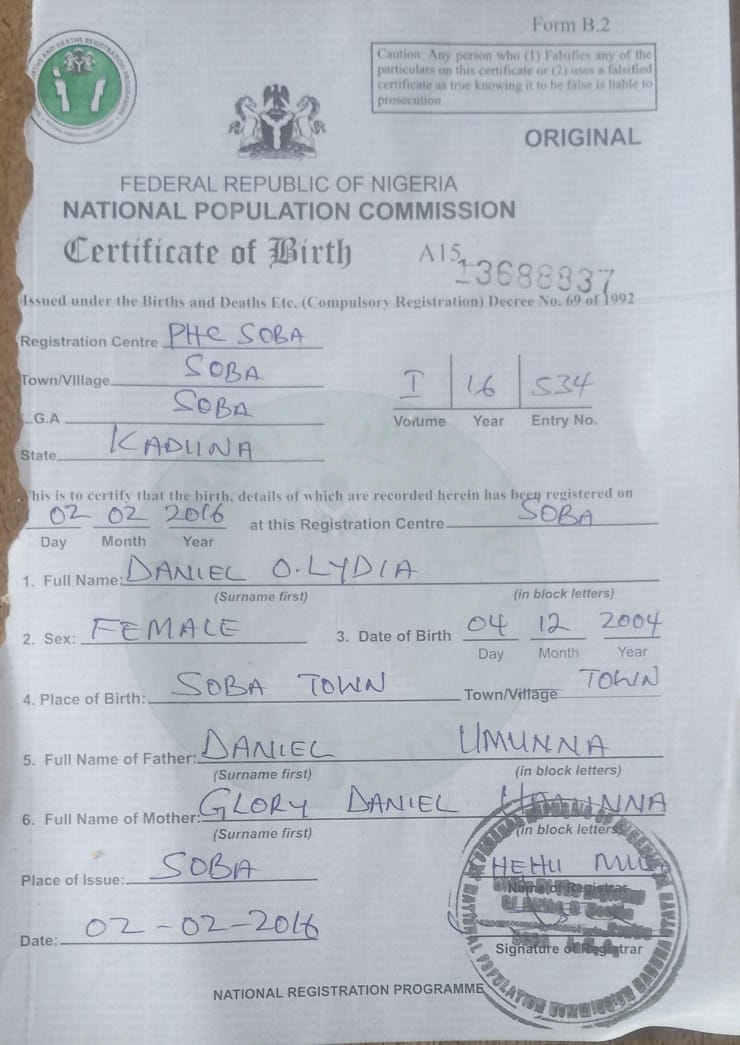 Form B.2
Caution: Any person who (1) Falsifies any of the
particulars on this certificate or (2) uses a falsified
certificate as true knowing it to be false is liable to
prosecution
ORIGINAL
FEDERAL REPUBLIC OF NIGERIA
NATIONAL POPULATION COMMISSION
Certificate of Birth A15 13688837
Issued under the Births and Deaths Etc. (Compulsory Registration) Decree No. 69 of 1992
Registration Centre PHC SOBA
Town/Village SOBA
I 16 534
L.G.A SOBA
Volume Year Entry No.
State KADUNA
This is to certify that the birth, details of which are recorded herein has been registered on
02 02 2016 at this Registration Centre SOBA
Day Month Year
1. Full Name: DANIEL O. LYDIA
(Surname first) (in block letters)
2. Sex: FEMALE 3. Date of Birth 04 12 2004
Day Month Year
4. Place of Birth: SOBA TOWN Town/Village TOWN
5. Full Name of Father: DANIEL UMUNNA
(Surname first) (in block letters)
6. Full Name of Mother: GLORY DANIEL
(Surname first) (in block letters)
Place of Issue: SOBA
Name of Registrar
Date: 02-02-2016
Signature of Registrar
NATIONAL REGISTRATION PROGRAMME
NATIONAL POPULATION COMMISSION